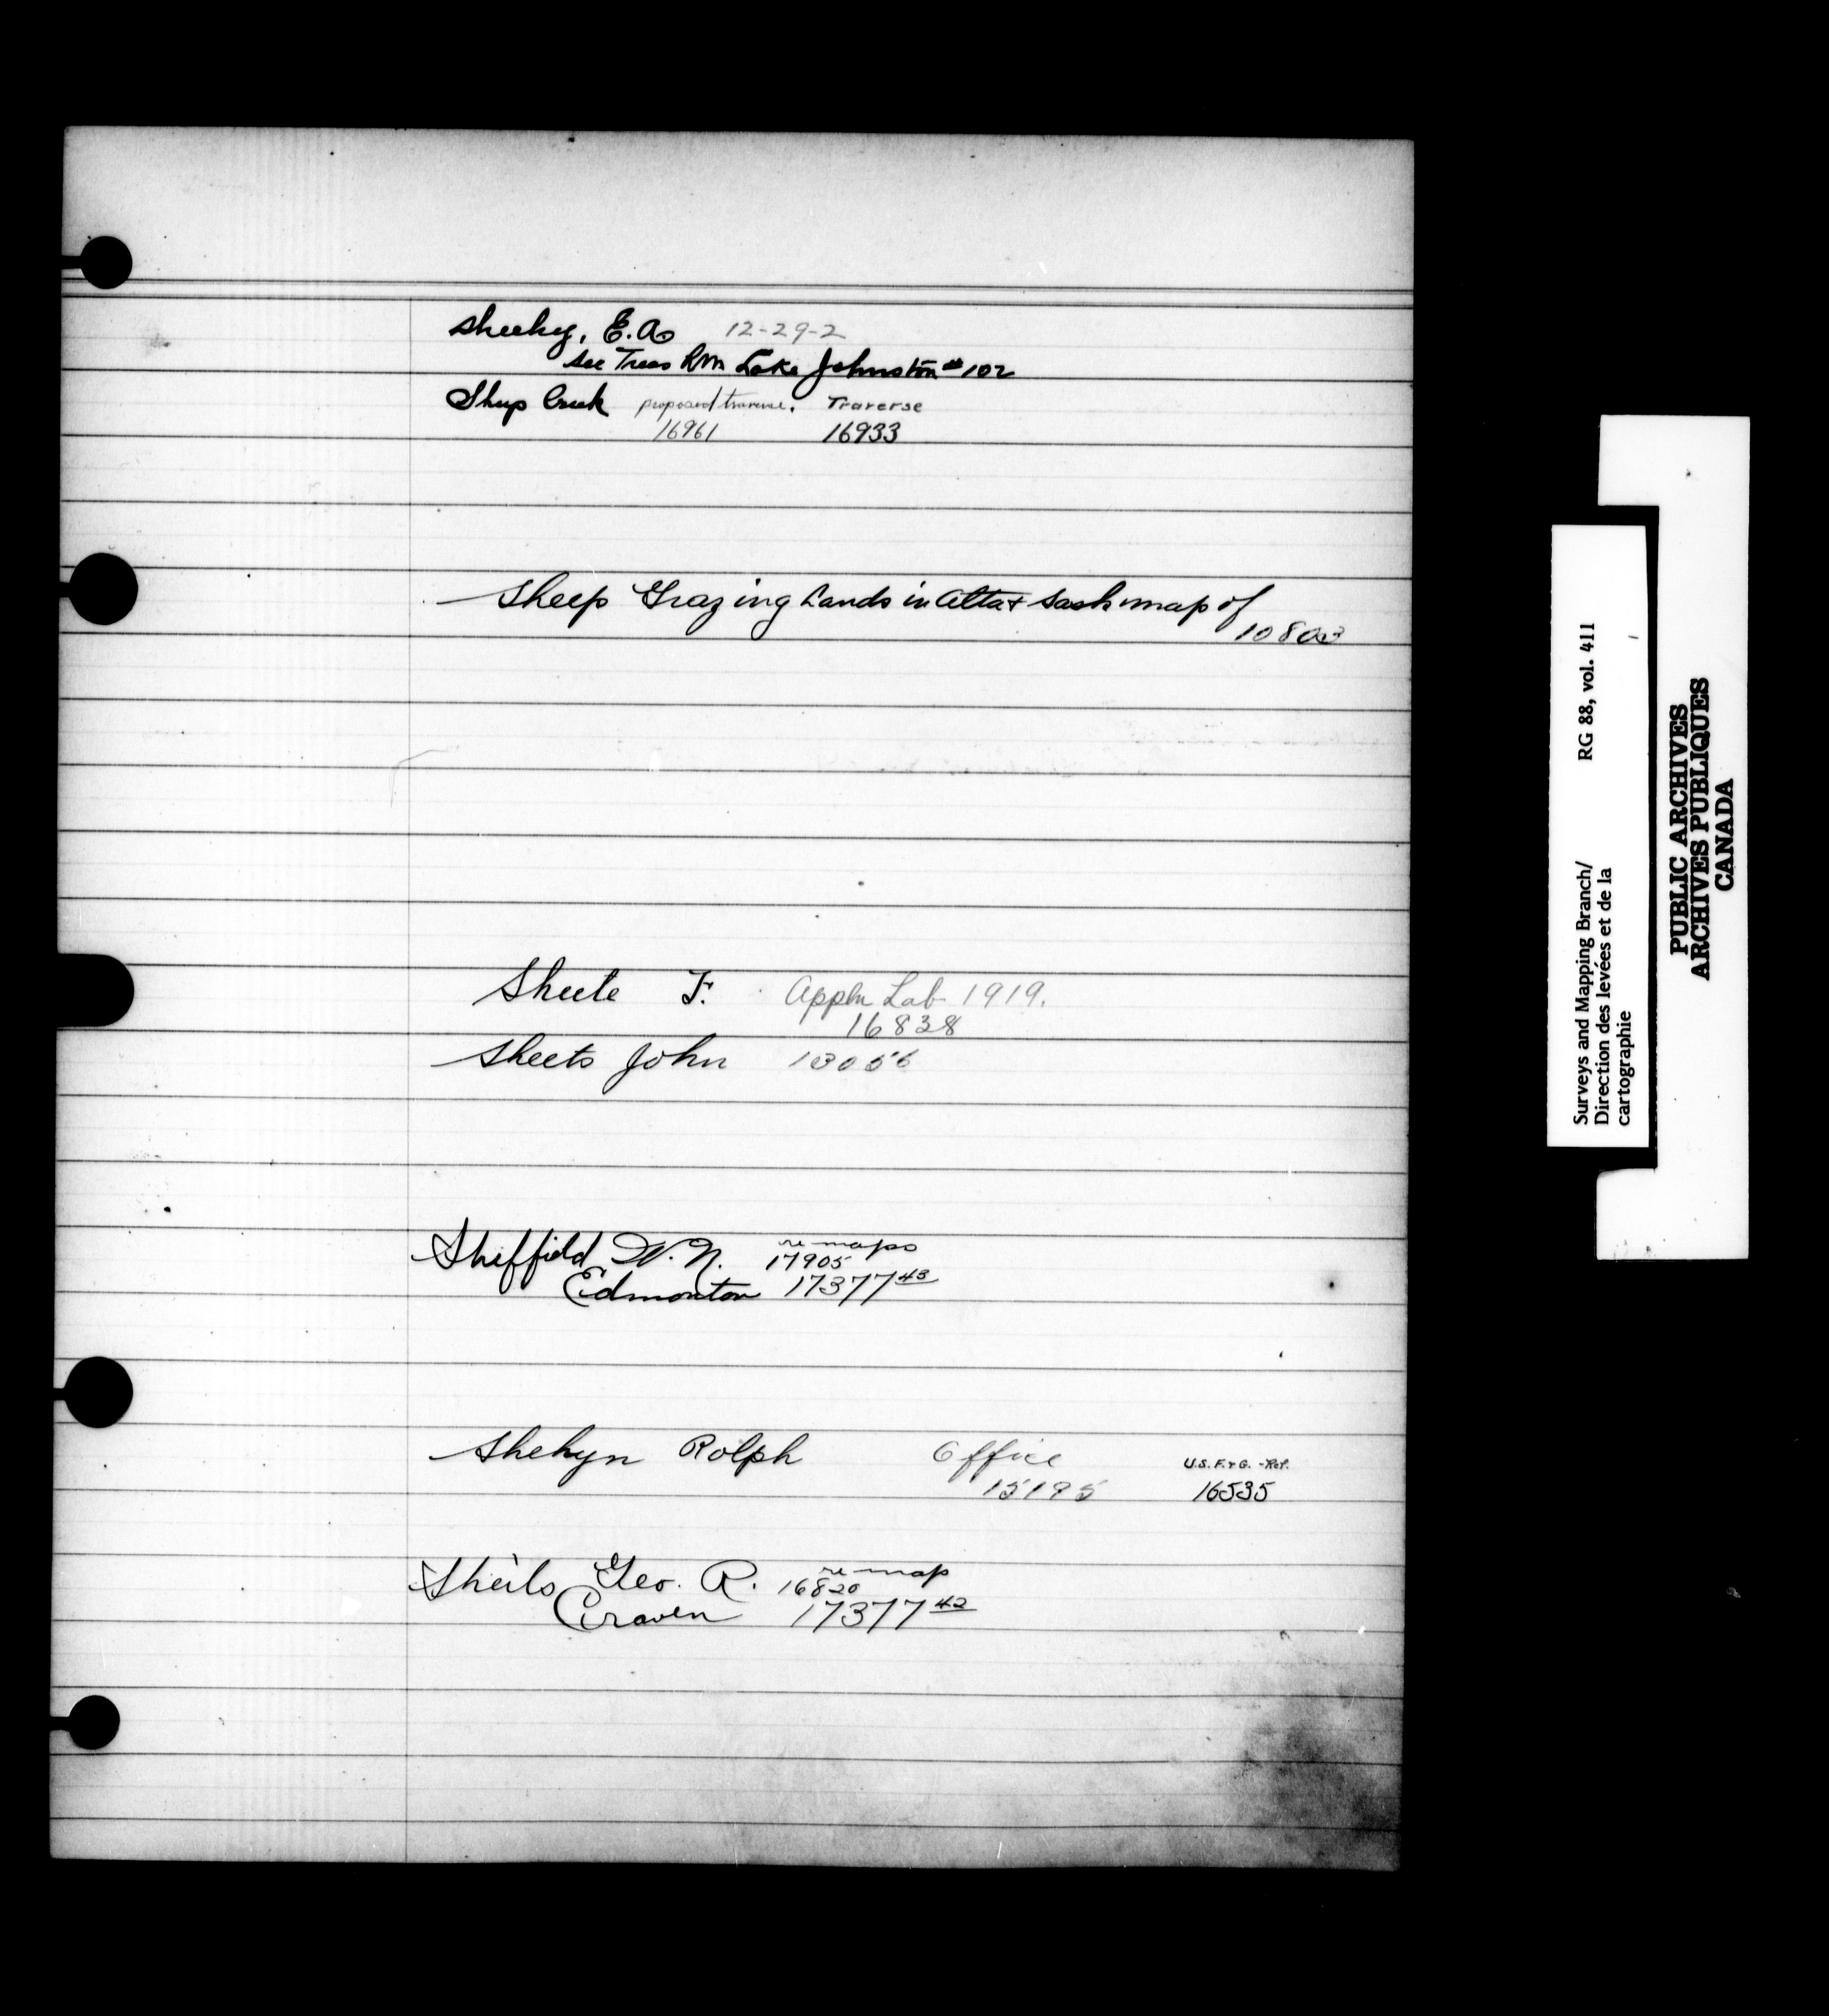 Sheehy, E.A. 12-29-2
See Treas RM Lake Johnston #102
Sheep Creek proposed traverse. Traverse
16961 16933
Sheep Grazing Lands in Alta & Sask map of
Sheete F. Appln Lab 1919.
16838
Sheets John 13056
Sheffield W. N. re maps
17905
Edmonton 17377 43
Shehyn Rolph Office U.S. F. & G. - Ref.
15195 16535
Sheils Geo. R. re map
16820
Craven 17377 42
Surveys and Mapping Branch/ RG 88, vol. 411
Direction des levées et de la
cartographie
PUBLIC ARCHIVES
ARCHIVES PUBLIQUES
CANADA